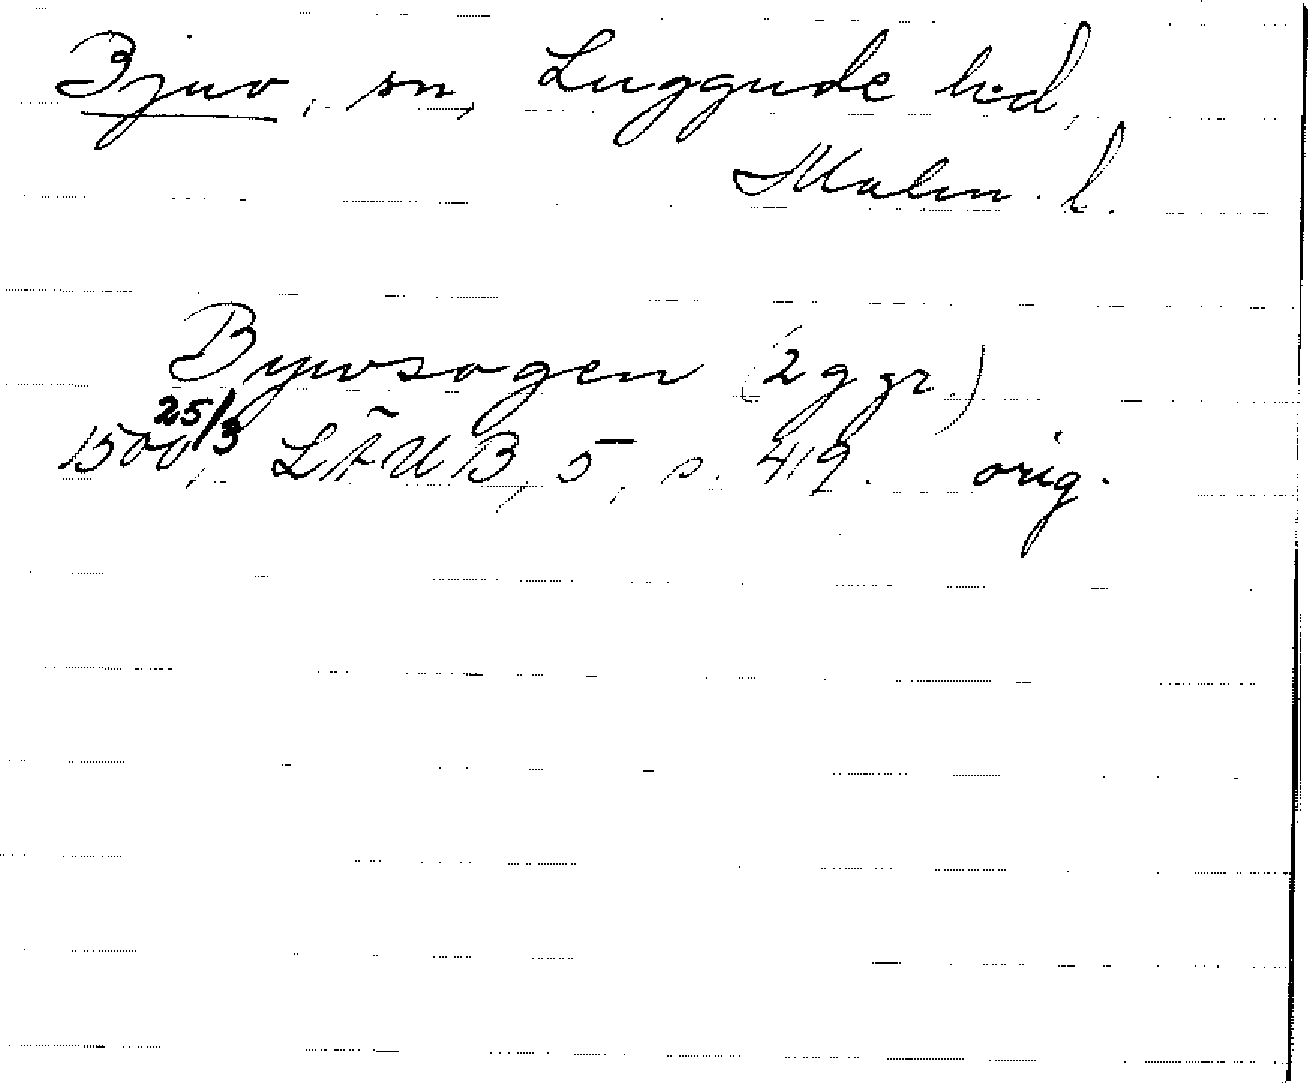 Bjuv, sn, Luggude hd,
Malm. l.
Bywsogen (2 ggr.)
1500 25/3, LÄUB, 5, s. 419. orig.